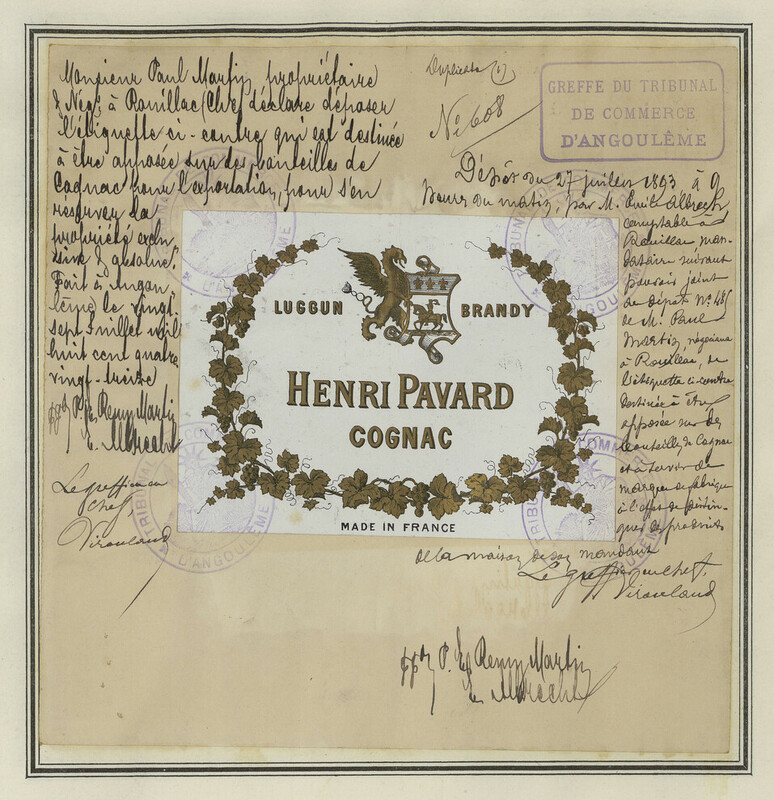 Monsieur Paul Martin, propriétaire
& Négt à Rouillac (Chte) déclare déposer
l'étiquette ci-contre qui est destinée
à être apposée sur des bouteilles de
Cognac pour l'exportation, pour s'en
réserver la
propriété exclu-
sive & absolue.
Fait à Angou-
lême le vingt-
sept Juillet mil
huit cent quatre
vingt-treize
ppon P. E. Remy Martin
E. Albrecht
Le greffier en
chef,
Virouland
Duplicata (1)
No 608
GREFFE DU TRIBUNAL
DE COMMERCE
D'ANGOULÊME
Dépôt du 27 juillet 1893 à 9
heures du matin, par M. Emile Albrecht
comptable à
Rouillac, man-
dataire suivant
pouvoir joint
au dépôt No
de M. Paul
Martin, négociant
à Rouillac, de
l'étiquette ci-contre
destinée à être
apposée sur des
bouteilles de Cognac
et à servir de
marque de fabrique
à l'effet de distin-
guer les produits
de la maison de son mandant
Le greffier en chef,
Virouland
LUGGUN BRANDY
HENRI PAVARD
COGNAC
MADE IN FRANCE
ppon P. E. Remy Martin
E. Albrecht
TRIBUNAL DE COMMERCE
D'ANGOULÊME